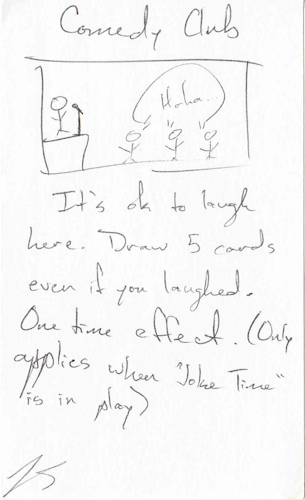 Comedy Club
Haha...
It's ok to laugh
here. Draw 5 cards
even if you laughed.
One time effect. (Only
applies when "Joke Time"
is in play)